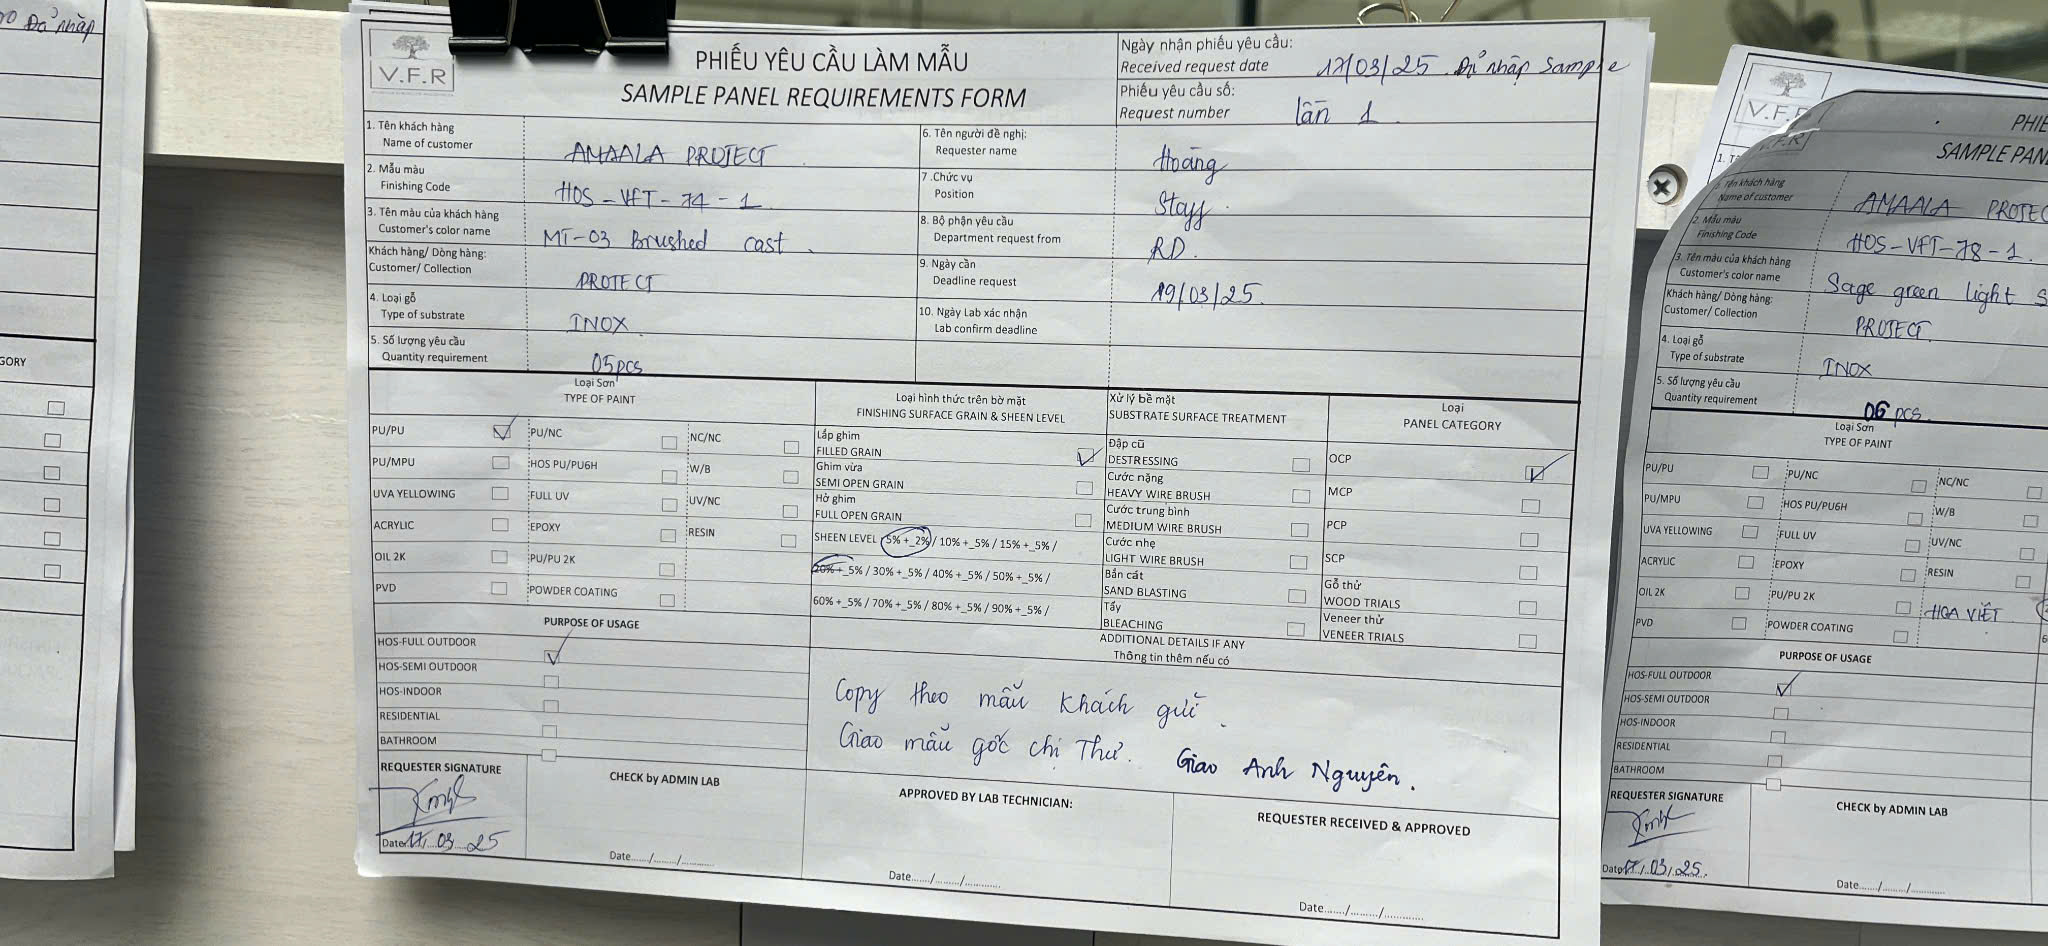 Đã nhập
GORY
V.F.R
PHIẾU YÊU CẦU LÀM MẪU
SAMPLE PANEL REQUIREMENTS FORM
Ngày nhận phiếu yêu cầu:
Received request date 17/03/25. Đã nhập Sample
Phiếu yêu cầu số:
Request number lần 1
1. Tên khách hàng
Name of customer AMAALA PROJECT
2. Mẫu màu
Finishing Code HOS-VFT-74-1
3. Tên màu của khách hàng
Customer's color name MT-03 Brushed cast.
Khách hàng/ Dòng hàng:
Customer/ Collection PROJECT
4. Loại gỗ
Type of substrate INOX
5. Số lượng yêu cầu
Quantity requirement 05pcs
6. Tên người đề nghị:
Requester name Hoàng
7 .Chức vụ
Position Staff.
8. Bộ phận yêu cầu
Department request from RD.
9. Ngày cần
Deadline request 19/03/25.
10. Ngày Lab xác nhận
Lab confirm deadline
Loại Sơn
TYPE OF PAINT
PU/PU PU/NC NC/NC
PU/MPU HOS PU/PU6H W/B
UVA YELLOWING FULL UV UV/NC
ACRYLIC EPOXY RESIN
OIL 2K PU/PU 2K
PVD POWDER COATING
Loại hình thức trên bờ mặt
FINISHING SURFACE GRAIN & SHEEN LEVEL
Lấp ghim
FILLED GRAIN
Ghim vừa
SEMI OPEN GRAIN
Hở ghim
FULL OPEN GRAIN
SHEEN LEVEL 5% +_2% / 10% +_5% / 15% +_5% /
20% +_5% / 30% +_5% / 40% +_5% / 50% +_5% /
60% +_5% / 70% +_5% / 80% +_5% / 90% +_5% /
Xử lý bề mặt
SUBSTRATE SURFACE TREATMENT
Đập cũ
DESTRESSING
Cước nặng
HEAVY WIRE BRUSH
Cước trung bình
MEDIUM WIRE BRUSH
Cước nhẹ
LIGHT WIRE BRUSH
Bắn cát
SAND BLASTING
Tẩy
BLEACHING
Loại
PANEL CATEGORY
OCP
MCP
PCP
SCP
Gỗ thử
WOOD TRIALS
Veneer thử
VENEER TRIALS
PURPOSE OF USAGE
HOS-FULL OUTDOOR
HOS-SEMI OUTDOOR
HOS-INDOOR
RESIDENTIAL
BATHROOM
ADDITIONAL DETAILS IF ANY
Thông tin thêm nếu có
Copy theo mẫu khách gửi.
Giao mẫu gốc chị Thư. Giao Anh Nguyên.
REQUESTER SIGNATURE
Date:17/03/25
CHECK by ADMIN LAB
Date....../......../............
APPROVED BY LAB TECHNICIAN:
Date....../........./............
REQUESTER RECEIVED & APPROVED
Date......./........./............
V.F.R
V.F.R
PHIẾ
SAMPLE PAN
1. Tên khách hàng
Name of customer AMAALA PROJEC
2. Mẫu màu
Finishing Code HOS-VFT-78-1.
3. Tên màu của khách hàng
Customer's color name Sage green light S
Khách hàng/ Dòng hàng:
Customer/ Collection PROJECT.
4. Loại gỗ
Type of substrate INOX
5. Số lượng yêu cầu
Quantity requirement 06 pcs.
Loại Sơn
TYPE OF PAINT
PU/PU PU/NC NC/NC
PU/MPU HOS PU/PU6H W/B
UVA YELLOWING FULL UV UV/NC
ACRYLIC EPOXY RESIN
OIL 2K PU/PU 2K HOA VIỆT
PVD POWDER COATING
PURPOSE OF USAGE
HOS-FULL OUTDOOR
HOS-SEMI OUTDOOR
HOS-INDOOR
RESIDENTIAL
BATHROOM
REQUESTER SIGNATURE
Date:17/03/25.
CHECK by ADMIN LAB
Date....../......../............